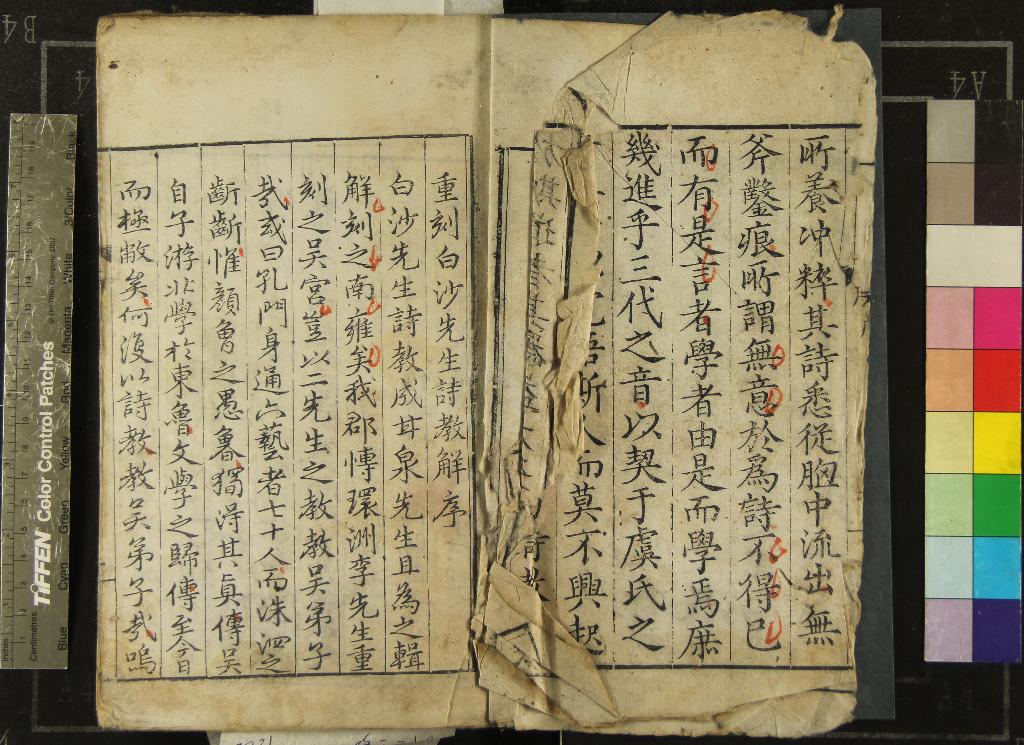 所養冲粹其詩悉從胸中流出無
斧鑿痕所謂無意於爲詩不得已
而有是言者學者由是而學焉庶
幾進乎三代之音以契于虞氏之
斯人而莫不興起
詩教
重刻白沙先生詩教解序
白沙先生詩教成甘泉先生且為之輯
解刻之南雍矣我郡慱環洲李先生重
刻之吴宮豈以二先生之教教吴弟子
㢤或曰孔門身通六藝者七十人而洙泗之
齗齗惟顔魯之愚魯獨淂其真傳吴
自子游北學於東魯文學之歸傳至今
而極敝矣何復以詩教教吴弟子㢤嗚
TIFFEN Color Control Patches
© The Tiffen Company, 2007
Inches
Centimetres
Blue
Cyan
Green
Yellow
Red
Magenta
White
3/Color
Black
B4
A4
A4